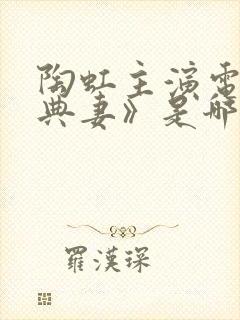 陶虹主演電
典妻》是哪
羅漢琛